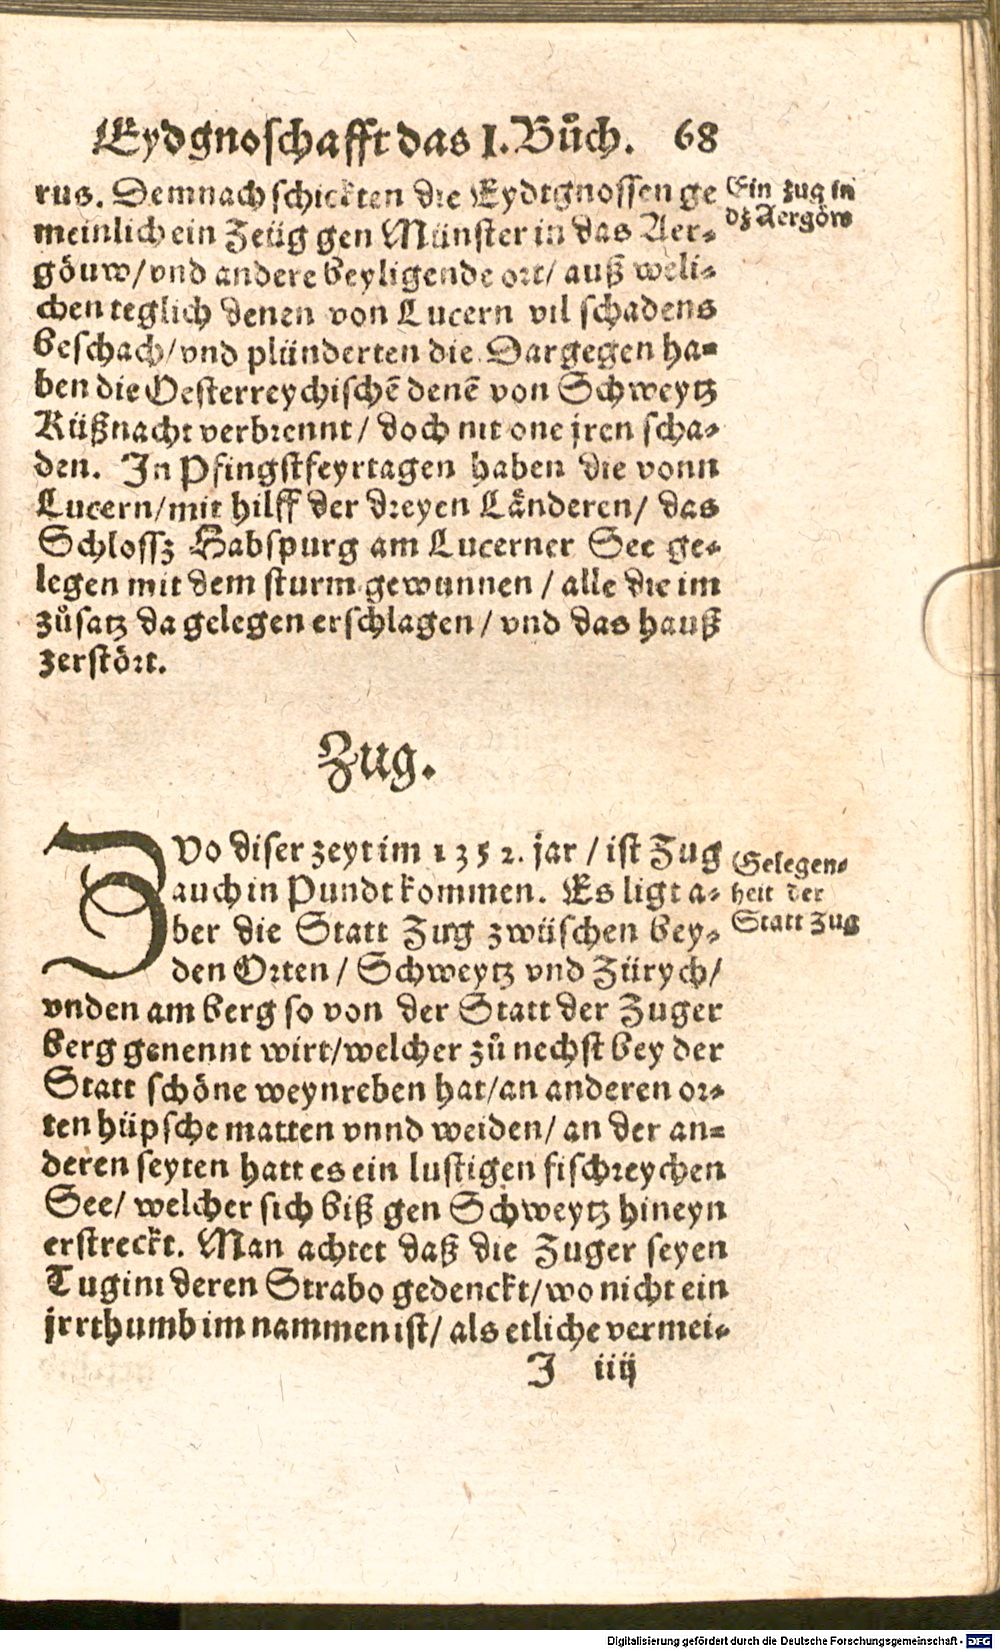 Eydgnoschafft das I. Bůch. 68
rus. Demnach schickten die Eydtgnossen ge
meinlich ein Zeüg gen Münster in das Aer-
göuw/ vnd andere beyligende ort/ auß weli-
chen teglich denen von Lucern vil schadens
beschach/ vnd plünderten die. Dargegen ha-
ben die Oesterreychischẽ denẽ von Schweytz
Küßnacht verbrennt/ doch nit one jren scha-
den. In Pfingstfeyrtagen haben die vonn
Lucern/ mit hilff der dreyen Länderen/ das
Schlossz Habspurg am Lucerner See ge-
legen mit dem sturm gewunnen/ alle die im
zůsatz da gelegen erschlagen/ vnd das hauß
zerstört.
Ein zug in
dz Aergöw
Zug.
ZVo diser zeyt im 1352. jar/ ist Zug
auch in Pundt kommen. Es ligt a-
ber die Statt Zug zwüschen bey-
den Orten/ Schweytz vnd Zürych/
vnden am berg so von der Statt der Zuger
berg genennt wirt/ welcher zů nechst bey der
Statt schöne weynreben hat/ an anderen or-
ten hüpsche matten vnnd weiden/ an der an-
deren seyten hatt es ein lustigen fischreychen
See/ welcher sich biß gen Schweytz hineyn
erstreckt. Man achtet daß die Zuger seyen
Tugini deren Strabo gedenckt/ wo nicht ein
jrrthumb im nammen ist/ als etliche vermei-
Gelegen-
heit der
Statt Zug
I iiij
Digitalisierung gefördert durch die Deutsche Forschungsgemeinschaft - DFG